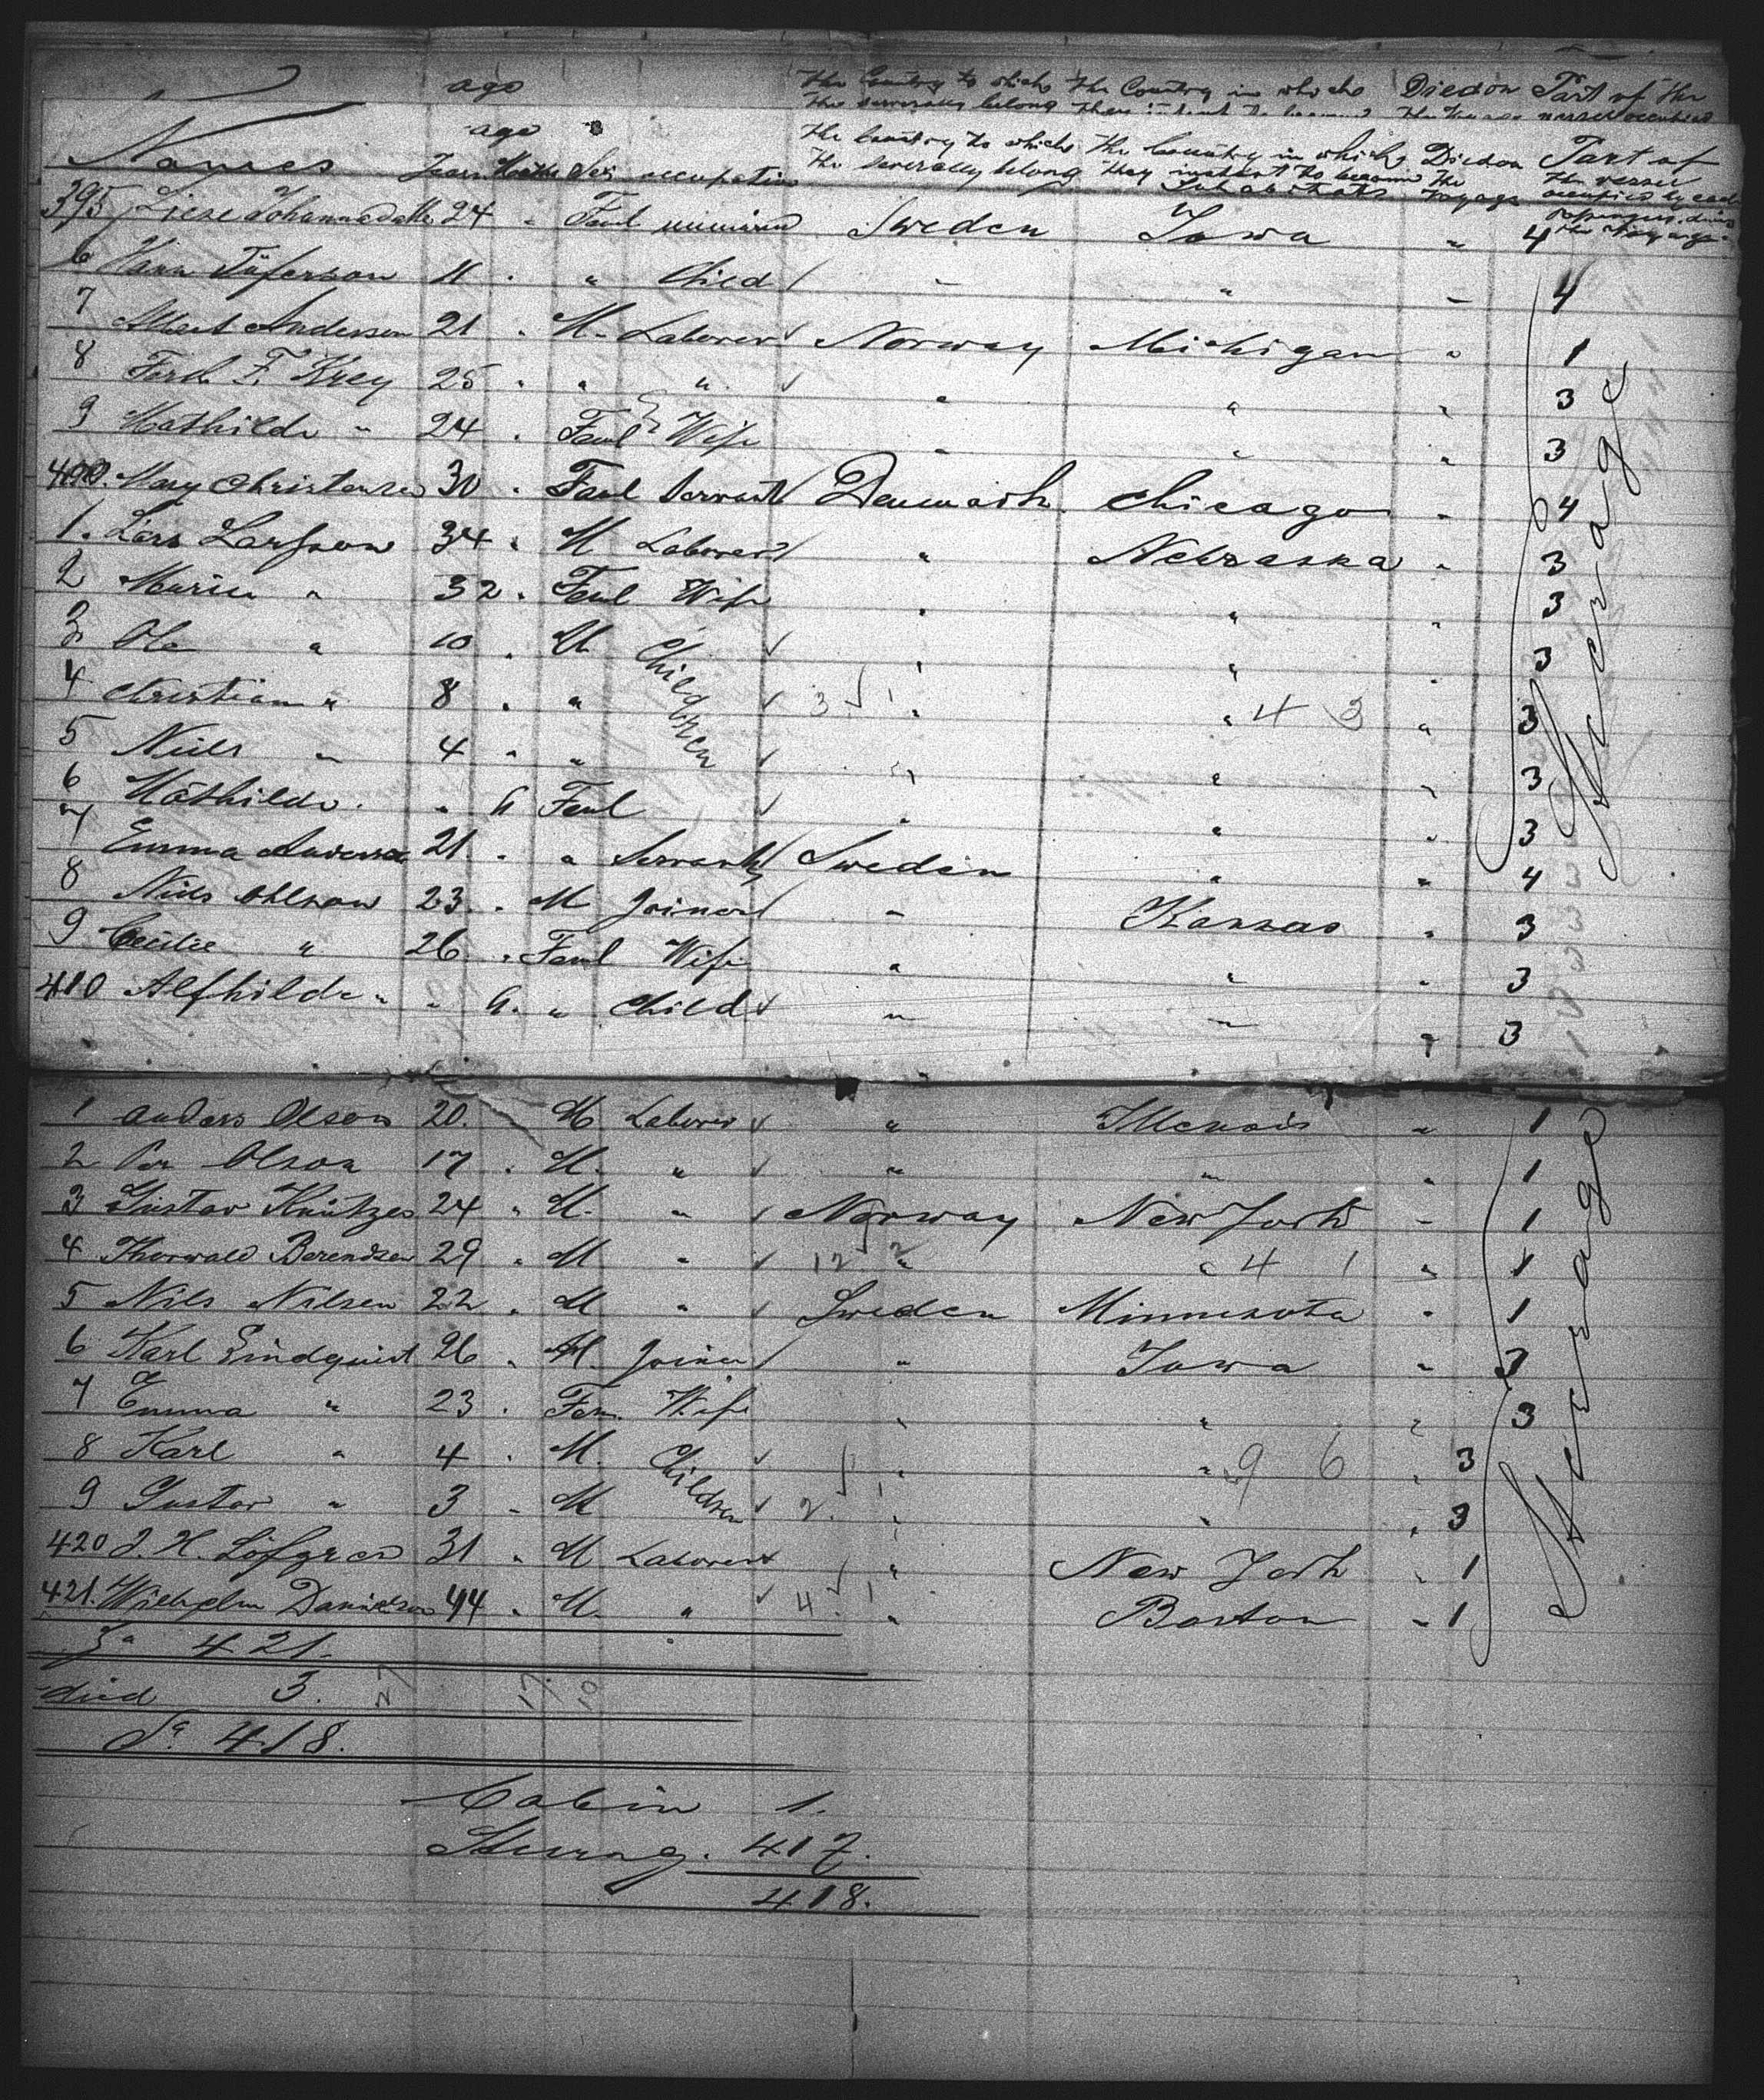 ago
The Country to which The Country in which Died on Part of the
the severally belong they intent to become the Voyage vessel occupied
ago
Names Years Months Sex occupation The Country to which the severally belong The Country in which they intent to become Inhabitants Died on the Voyage Part of the vessel occupied by each passengers during the voyage
395 Liese 24 " Feml Sweden Iowa " 4
6 11 " " Child " " " 4
7 Albert Anderson 21 " M. Laborer Norway Michigan " 1
8 Ferd. F. Krey 25 " " " " " " 3
9 Mathilde " 24 " Feml Wife " " " 3
400. Mary Christensen 30 " Feml Servant Denmark Chicago " 4
1. Lars Larsson 34 " M Laborer " Nebraska " 3
2 Maria " 32 " Feml Wife " " " 3
3 Ole " 10 " M Children " " " 3
4 Christian " 8 " " 3 1 " " 4 3 " 3
5 Niels " 4 " " " " " 3
6 Mathilde " " 6 Feml " " " 3
7 Emma Anderson 21 " " Servant Sweden " " 4
8 Niels Ohlson 23 " M Joiner " Kansas " 3
9 Cecilie " 26 " Feml Wife " " " 3
410 Alfhilde " " 6. " Child " " " 3
Steerage
1 Anders Olson 20. M Laborer " Illenois " 1
2 Per Olson 17 " M. " " " " 1
3 Gustav 24 " M. " Norway New York " 1
4 Thorwald Berendsen 29 " M " 12 2 " " 4 1 " 1
5 Nils Nilsen 22 " M " Sweden Minnesota " 1
6 Karl Lindquist 26 " M. Joiner " Iowa " 3
7 Emma " 23 " Fem. Wife " " " 3
8 Karl " 4 " M. Children " " 9 6 " 3
9 Gustav " 3 " M 2. 1 " " " 3
420 J. H. Löfgren 31 " M Laborer " New York " 1
421. Wilhelm Danielson 44 " M. " 4 1 " Boston " 1
Steerage
Sa 421.
died 3. 27 17 10
Sa 418.
Cabin 1.
Steerag. 417.
418.